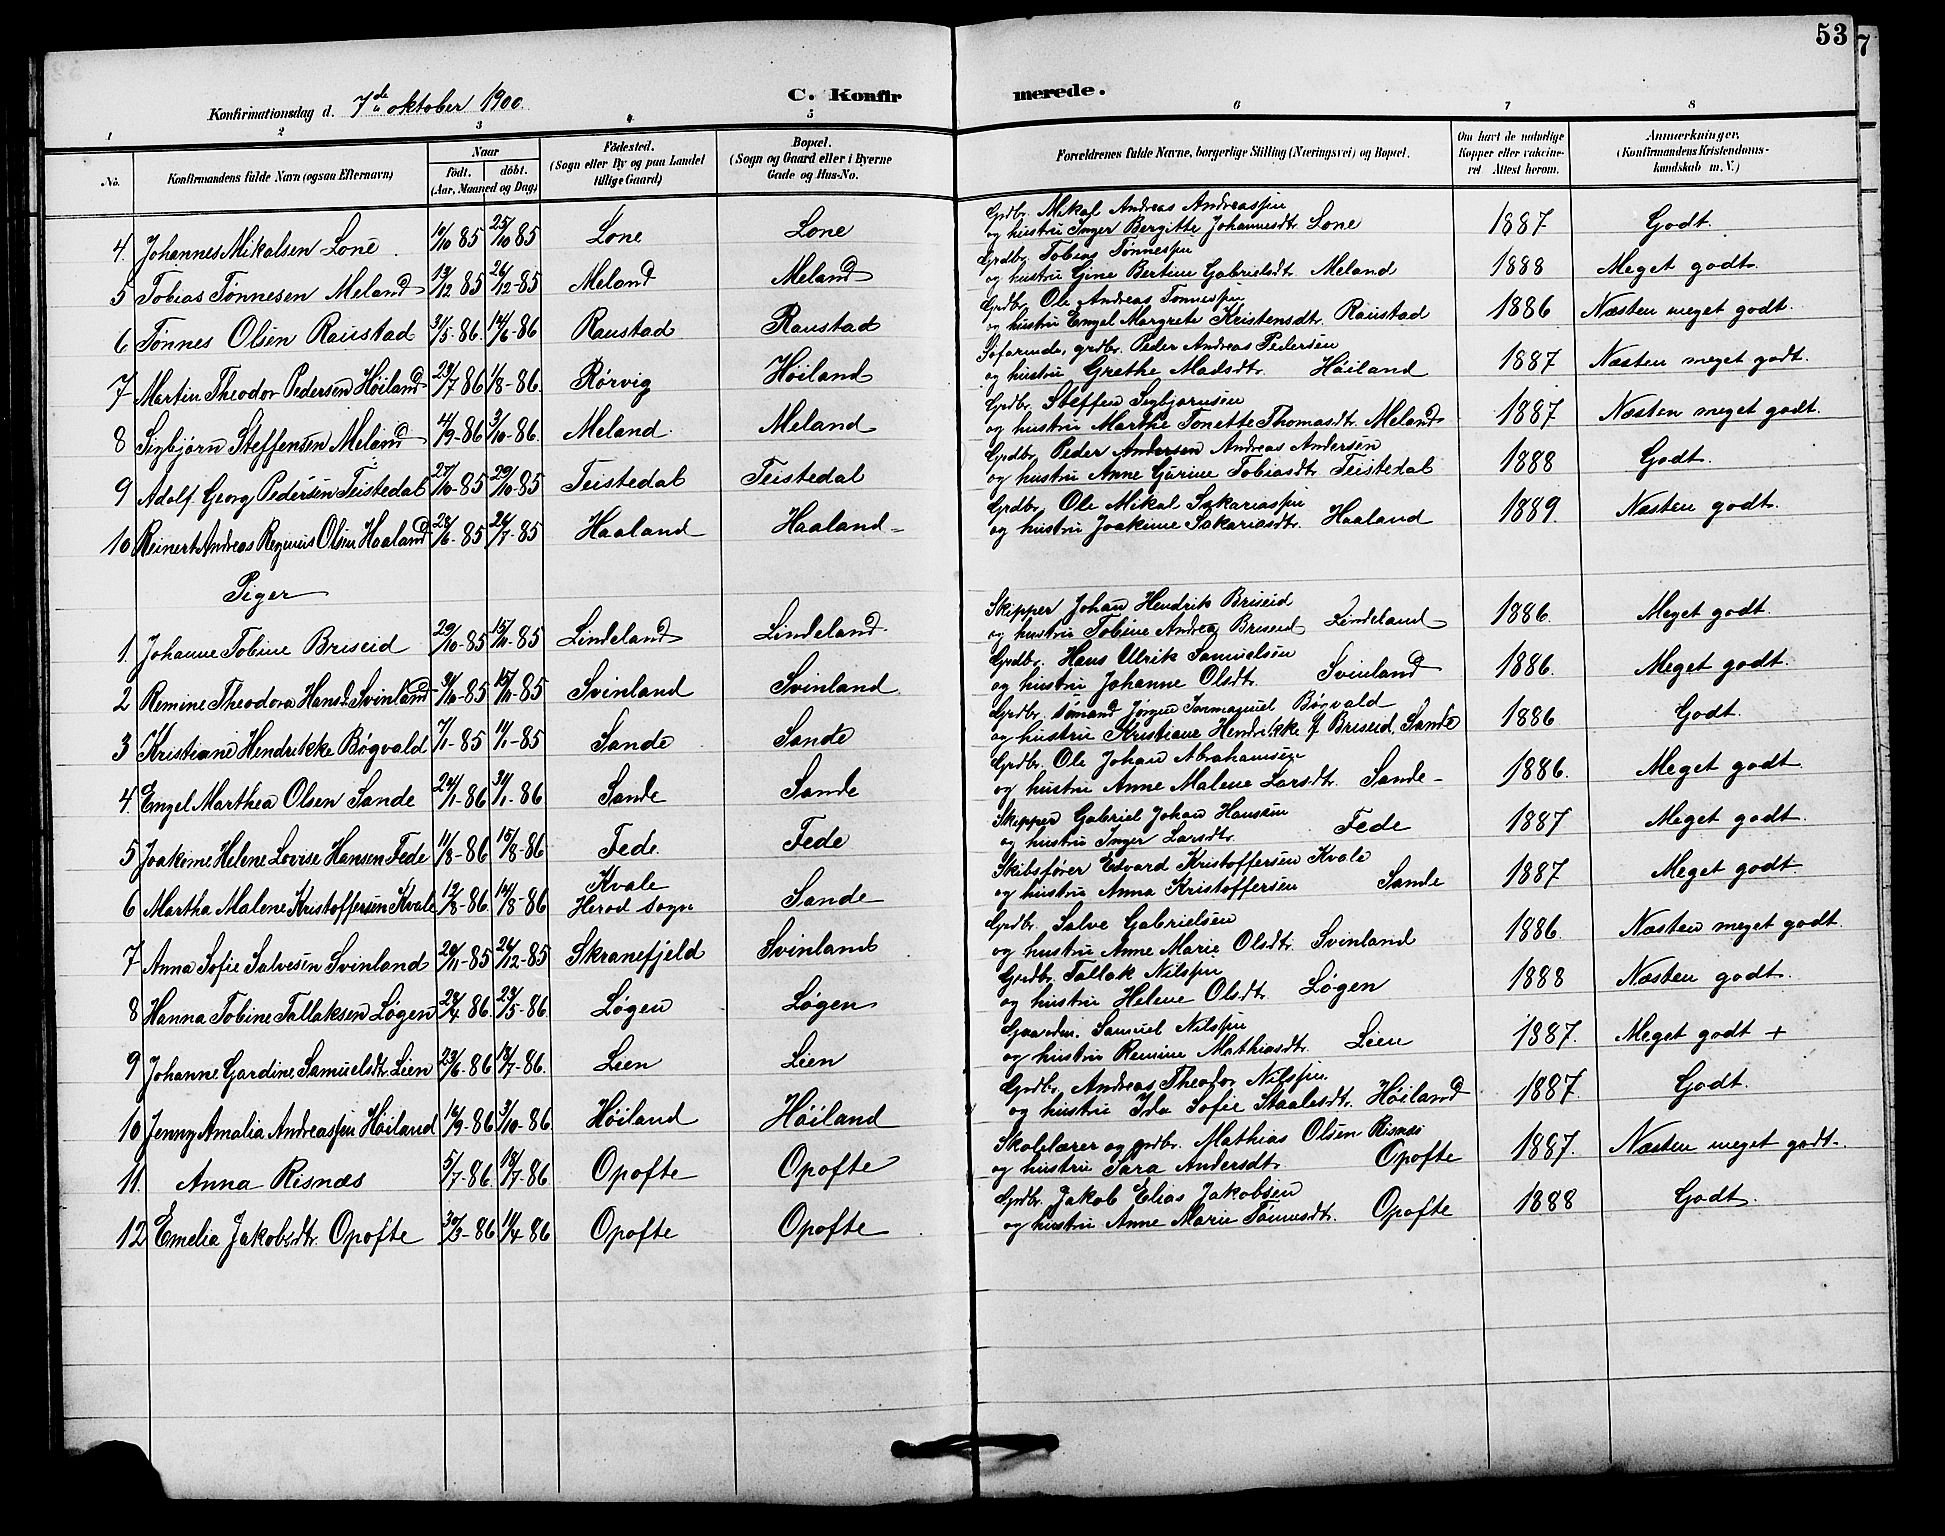 53
7
Konfirmationsdag d. 7de oktober 1900. C. Konfir merede.
1 2 3 4 5 6 7 8
No. Konfirmandens fulde Navn (ogsaa Efternavn) Naar født. døbt. (Aar, Maaned og Dag) Fødested. (Sogn eller By og paa Landet tillige Gaard) Bopæl. (Sogn og Gaard eller i Byerne Gade og Hus-No. Forældrenes fulde Navne, borgerlige Stilling (Næringsvei) og Bopæl. Om havt de naturlige Kopper eller vakcineret Attest herom. Anmærkninger. (Konfirmandens Kristendomskundskab m. V.)
Grdbr. Mikal Andreas Andreassen
4. Johannes Mikalsen Lone 10/10 85 25/10 85 Lone Lone og hustru Inger Bergitte Johannesdt. Lone 1887 Godt.
Grdbr. Tobias Tønnessen
5 Tobias Tønnesen Meland 13/12 85 26/12-85 Meland Meland og hustru Gine Bertine Gabrielsdt. Meland 1888 Meget godt.
Grdbr. Ole Andreas Tønnessen
6 Tønnes Olsen Raustad 31/5-86. 14/6-86 Raustad Raustad og hustru Engel Margrete Kristensdt. Raustad 1886 Næsten meget godt.
Søfarende, grdbr. Peder Andreas Pedersen
7 Martin Theodor Pedersen Høiland 24/7 86 1/8-86. Rørvig Høiland og hustru Grethe Madsdt. Høiland 1887 Næsten meget godt.
Grdbr. Steffen Sigbjørnsen
8 Sigbjørn Steffensen Meland 4/9-86 3/10-86. Meland. Meland og hustru Marthe Tonette Thomasdt. Meland 1887 Næsten meget godt.
Grdbr. Peder Andersen Andreas Andersen
9 Adolf Georg Pedersen Teistedal 27/10-85 29/10-85 Teistedal Teistedal og hustru Anne Gurine Tobiasdt. Teistedal 1888 Godt.
Grdbr. Ole Mikal Sakariassen
10 Reinert Andreas Regnius Olsen Haaland 28/6-85 26/7-85 Haaland Haaland og hustru Joakime Sakariasdt. Haaland 1889. Næsten godt.
Piger
Skipper Johan Hendrik Briseid
1. Johanne Tobine Briseid 29/10-85 15/11-85 Lindeland Lindeland. og hustru Tobine Andrea Briseid Lindeland 1886. Meget godt.
Grdbr. Hans Ulrik Samuelsen
2 Remine Theodora Hansd. Svinland 31/10-85 15/11-85 Svinland Svinland. og hustru Johanne Olsdt. Svinland 1886. Meget godt.
Grdbr. sømand Jørgen Immanuel Bøgvald
3 Kristiane Hendrikke Bøgvald 7/1-85 11/1-85 Sande Sande og hustru Kristiane Hendrikke f. Briseid, Sande 1886 Godt.
Grdbr. Ole Johan Abrahamsen
4. Engel Marthea Olsen Sande 24/1-86 31/1-86 Sande Sande og hustru Anne Malene Larsdt. Sande 1886. Meget godt.
Skipper Gabriel Johan Hansen
5 Joakime Helene Lovise Hansen Fede 11/8-86 15/8-86 Fede. Fede og hustru Inger Larsdt. Fede 1887 Meget godt.
Skibsfører Edvard Kristoffersen Kvale
6 Martha Malene Kristoffersen Kvale 12/8-86. 14/8-86 Kvale Herod sogn Sande og hustru Anna Kristoffersen Sande 1887 Meget godt.
Grdbr. Salve Gabrielsen
7 Anna Sofie Salvesen Svinland 20/11-85 26/12-85 Skranefjeld Svinland og hustru Anne Marie Olsdt. Svinland 1886. Næsten meget godt.
Grdbr. Tallak Nilssen
8 Hanna Tobine Tallaksen Løgen 28/4 86. 29/5-86. Løgen Løgen og hustru Helene Olsdt. Løgen 1888 Næsten godt.
Gaardm. Samuel Nilssen
9 Johanne Gardine Samuelsdt. Lien 23/6-86 18/7-86. Lien Lien og hustru Remine Mathiasdt. Lien 1887. Meget godt +
Grdbr. Andreas Theodor Nilssen.
10 Jenny Amalia Andreassen Høiland 16/9-86 3/10-86. Høiland Høiland og hustru Ida Sofie Staalesdt. Høiland 1887. Godt.
Skolelærer og grdbr. Mathias Olsen Risnæs
11. Anna Risnæs 5/7-86. 18/7-86 Opofte Opofte og hustru Sara Andersdt. Opofte 1887. Næsten meget godt.
Grdbr. Jakob Elias Jakobsen
12 Emelia Jakobsdt. Opofte 30/3-86 11/4-86 Opofte Opofte og hustru Anne Marie Tønnesdt. Opofte 1888 Godt.